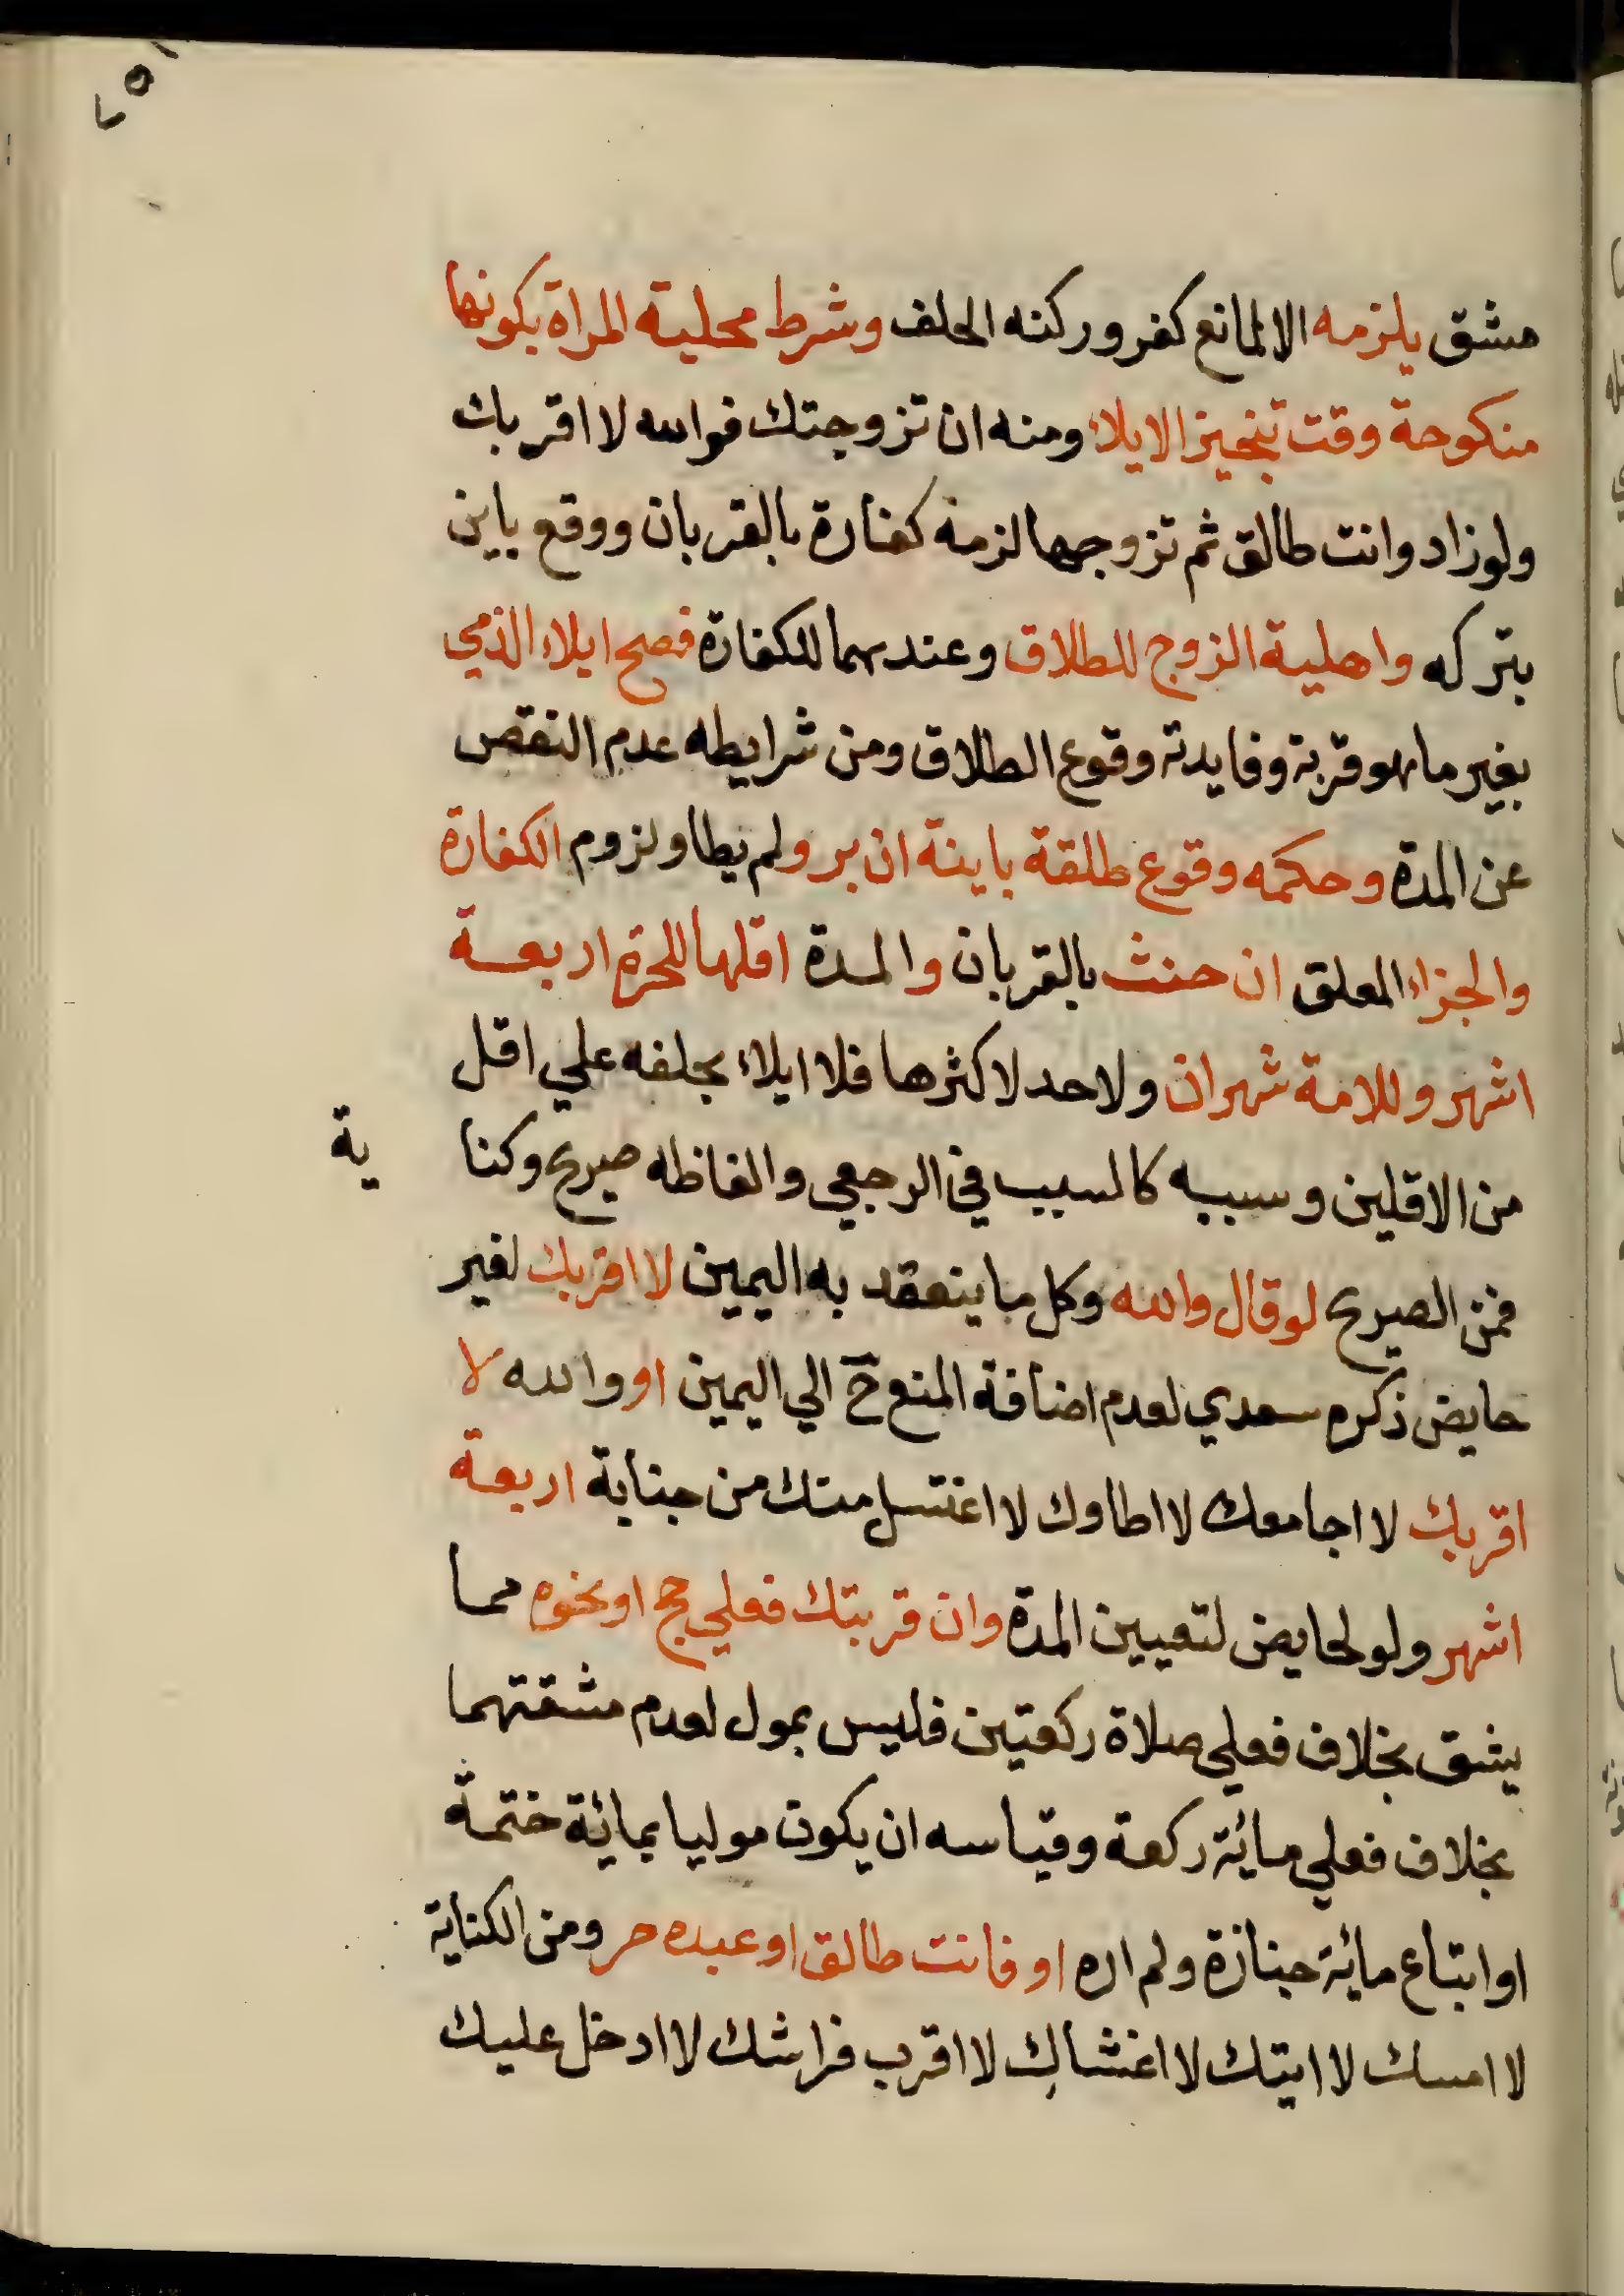 مشق يلزمه الا لمانع كفر وركنه الحلف وشرط محلية المراة بكونها
منكوحة وقت تنجيز الايلاء ومنه ان تزوجتك فوالله لا اقربك
ولو زاد وانت طالق ثم تزوجها لزمه كفارة بالقربان ووقع باين
بتركه واهلية الزوج للطلاق وعندهما للكفارة فصح ايلاء الذمي
بغير ما هو قربة وفايدته وقوع الطلاق ومن شرايطه عدم النقص
عن المدة وحكمه وقوع طلقة باينة ان بر ولم يطا ولزوم الكفارة
والجزاء المعلق ان حنث بالقربان والمدة اقلها للحرة اربعة
اشهر وللامة شهران ولا حد لاكثرها فلا ايلاء بحلفه علي اقل
من الاقلين وسببه كالسبب في الرجعي والفاظه صريح وكنا ية
فمن الصريح لو قال والله وكل ما ينعقد به اليمين لا اقربك لغير
حايض ذكره سعدي لعدم اضافة المنع ح الي اليمين او والله لا
اقربك لا اجامعك لا اطاوك لا اغتسل منك من جنابة اربعة
اشهر ولو لحايض لتعيين المدة وان قربتك فعلي حج او نحوه مما
يشق بخلاف فعلي صلاة ركعتين فليس بمول لعدم مشقتهما
بخلاف فعلي مائة ركعة وقياسه ان يكون موليا بمائة ختمة
او اتباع مائة جنازة ولم اره او فانت طالق او عبده حر ومن الكناية
لا امسك لا اتيتك لا اغشاك لا اقرب فراشك لا ادخل عليك